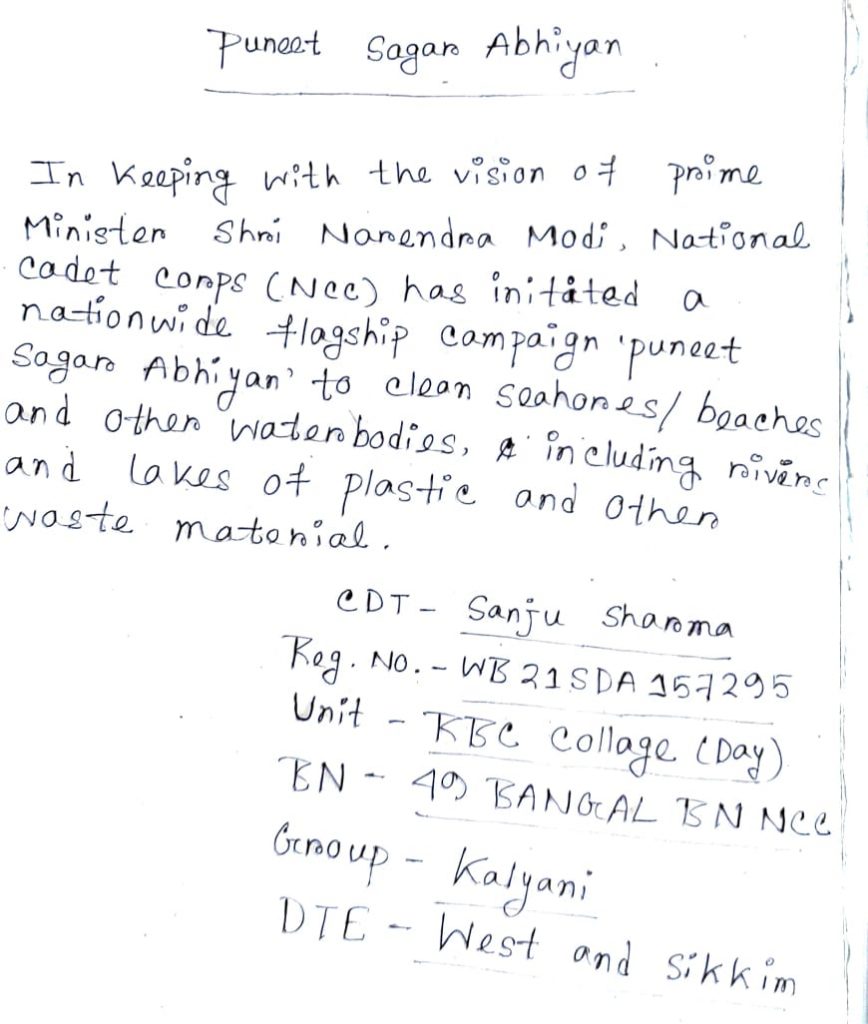 Puneet Sagar Abhiyan.
In Keeping with the vision of prime
Minister Shri Narendra Modi, National
Cadet Corps (NCC) has initated a
nationwide flagship campaign 'puneet
Sagar Abhiyan' to clean seahores/ beaches
and other waterbodies, including rivers
and lakes of plastic and other
waste material.
CDT - Sanju Sharma
Reg. No. - WB21SDA157295
Unit - KBC Collage (Day)
BN - 49 BANGAL BN NCC
Group - Kalyani
DTE - West and Sikkim